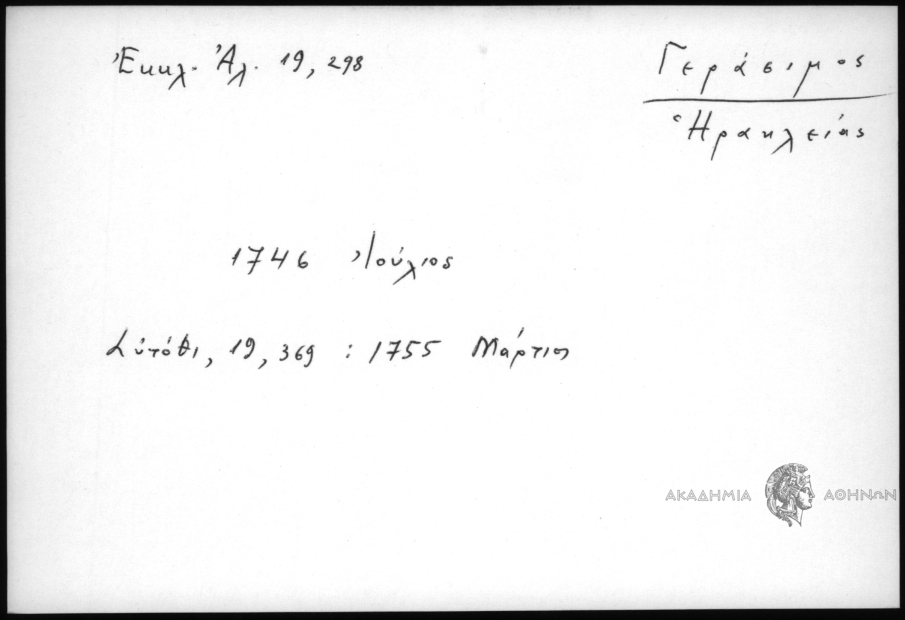 Ἐκκλ. Ἀλ. 19, 298
Γεράσιμος
Ἡρακλείας
1746 Ἰούλιος
Αὐτόθι, 19, 369 : 1755 Μάρτιος
ΑΚΑΔΗΜΙΑ ΑΘΗΝΩΝ